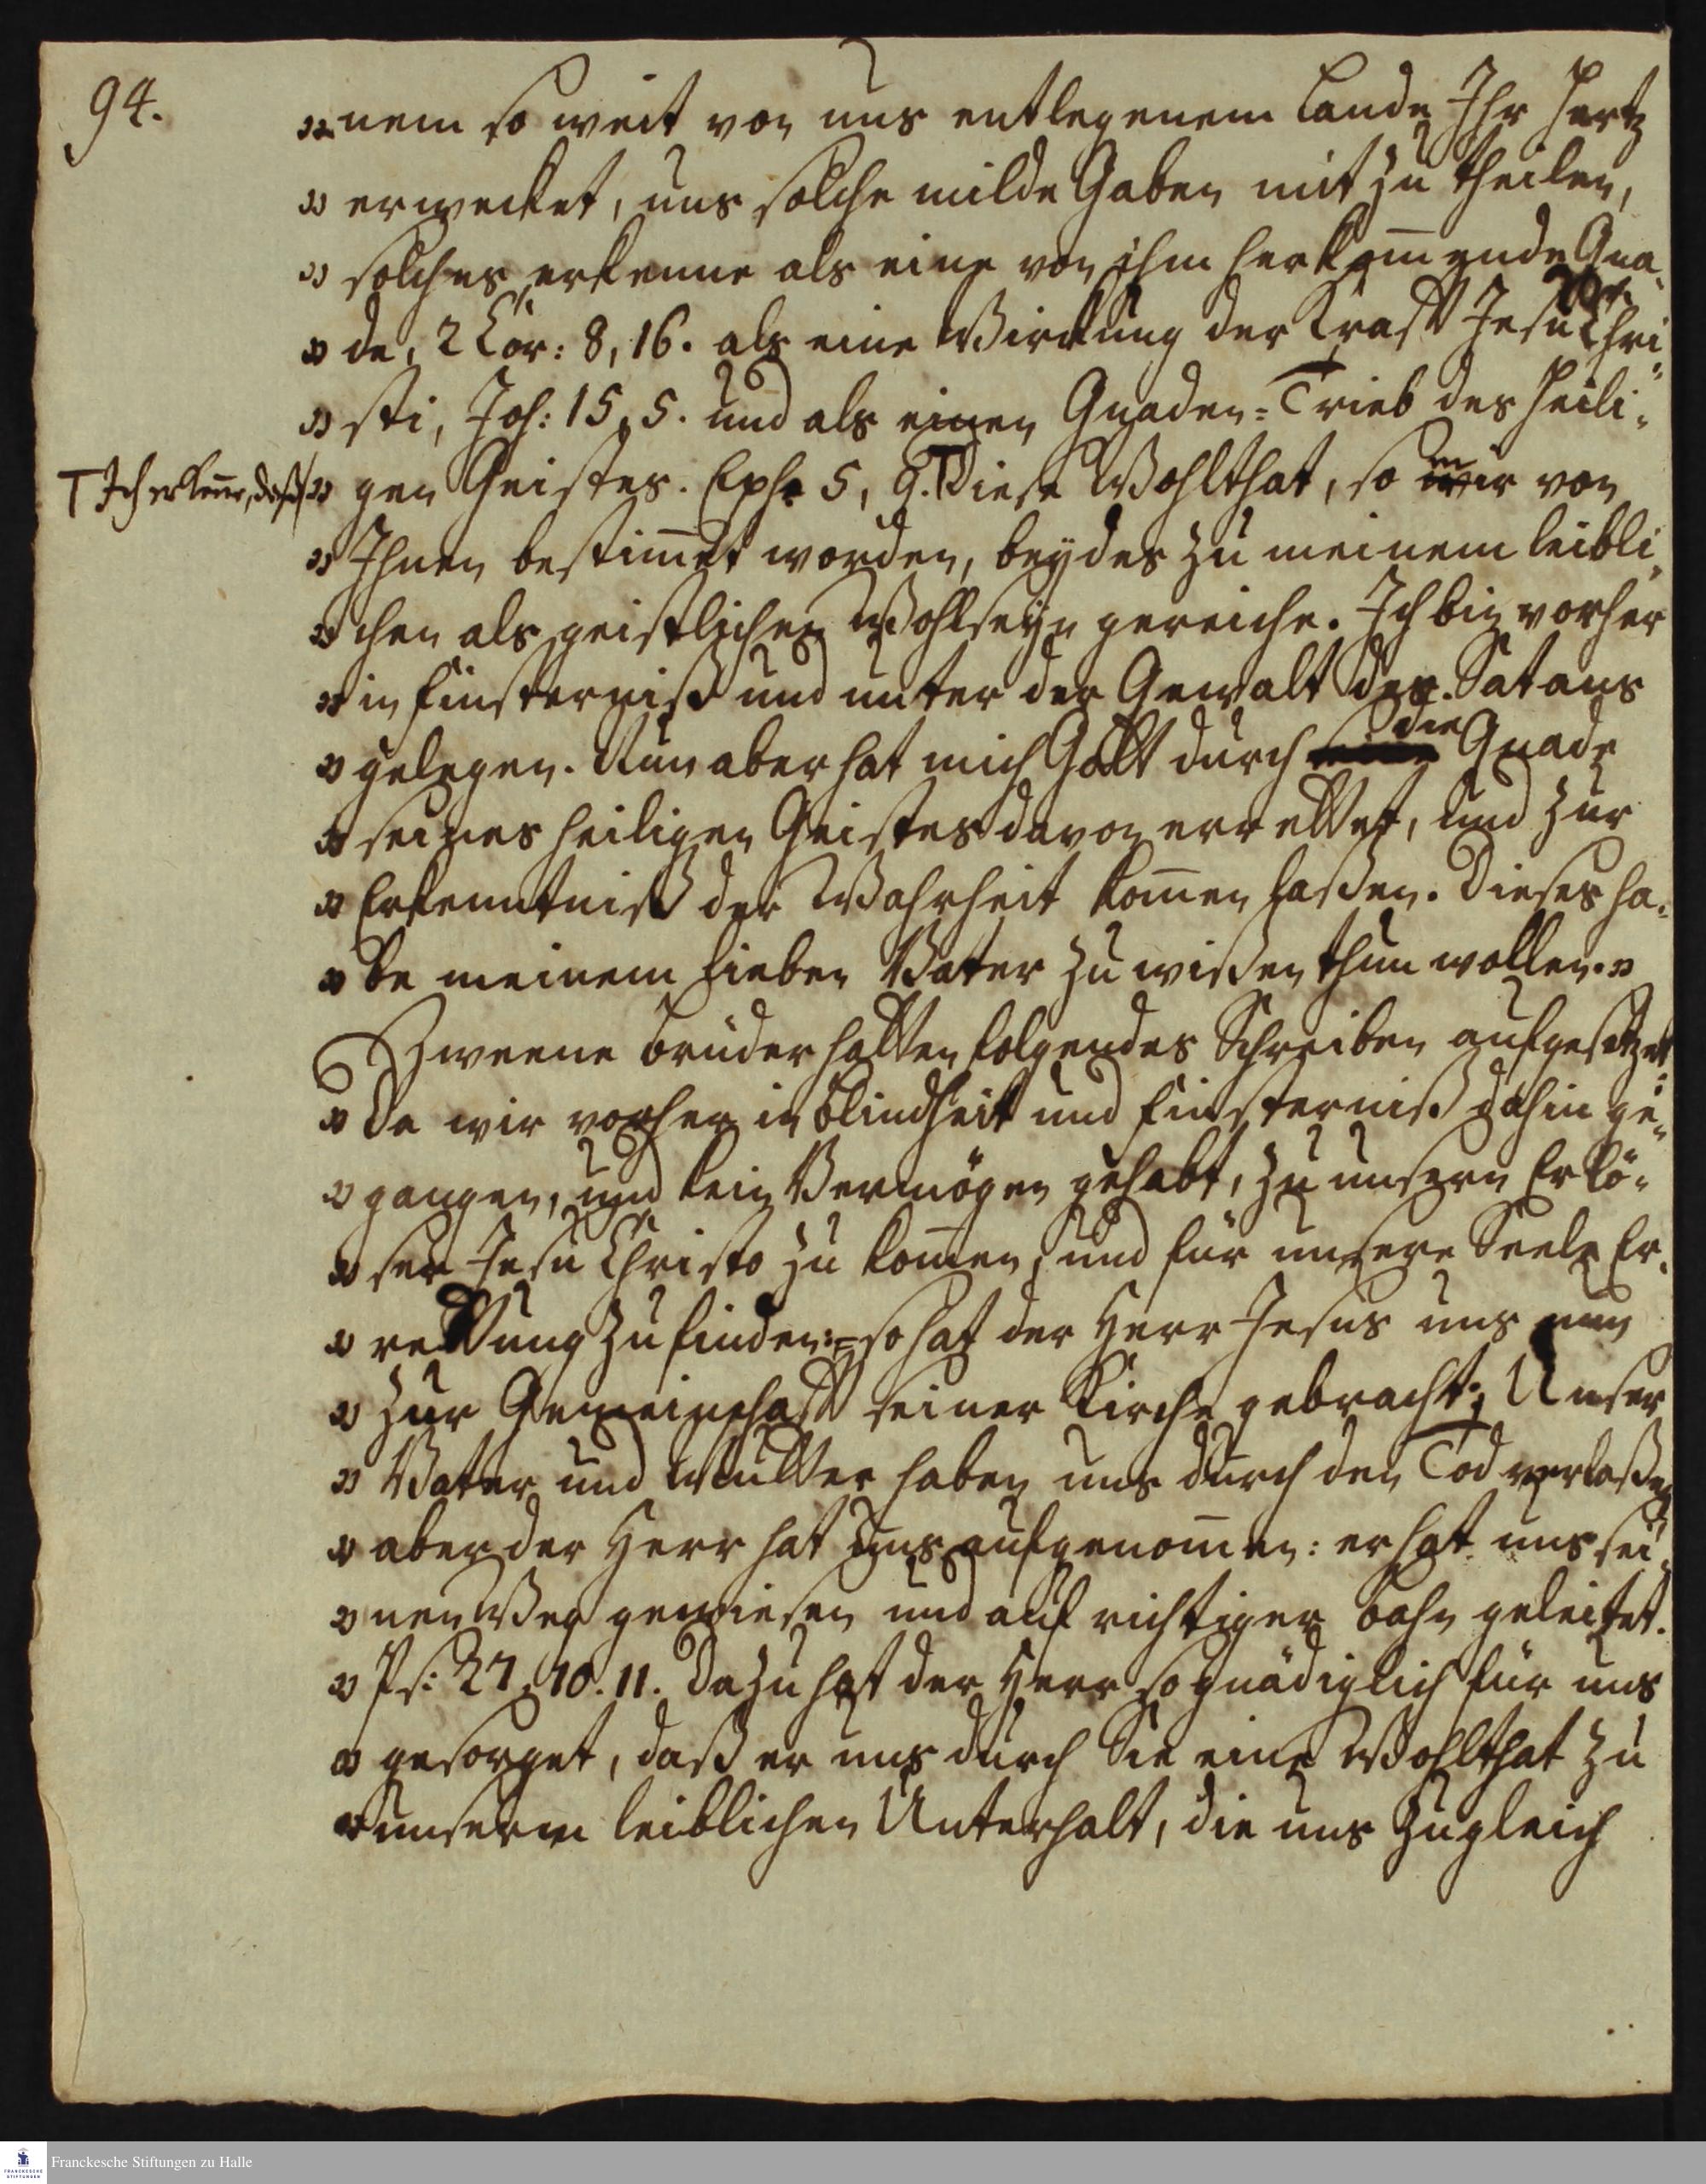 94.
„nem so weit von uns entlegenem Lande Ihr Hertz
„ erwecket, uns solche milde Gaben mit zu theilen,
„ solches erkenne als eine von ihm herkom̄ende Gna„
„ de, 2 Cor: 8, 16. als eine Wirckung der Krafft Jesu Chri„
„ sti, Joh: 15, 5. und als einen Gnaden=Trieb des Heili„
⊤ Ich erkeñe, daß
„ gen Geistes. Ephe 5, 9. ⊤ Diese Wohlthat, so mir von
„ Ihnen bestim̄et worden, beydes zu meinem leibli„
„ chen als geistlichen Wohlseyn gereiche. Ich bin vorher
„ in Finsterniß und unter der Gewalt des Satans
„ gelegen. Nun aber hat mich Gott durch die Gnade
„ seines heiligen Geistes davon errettet, und zur
„ Erkenntniß der Wahrheit kom̄en laßen. Dieses ha„
„ be meinem lieben Vater zu wißen thun wollen. „
Zweene Brüder hatten folgendes Schreiben aufgesetzet:
„ Da wir vorher in Blindheit und Finsterniß dahin ge„
„ gangen, und kein Vermögen gehabt, zu unsern Erlö„
„ ser Jesu Christo zu kom̄en, und für unsere Seele Er„
„ rettung zu finden: = so hat der Herr Jesus uns nun
„ zur Gemeinschafft seiner Kirche gebracht; Unser
„ Vater und Mutter haben uns durch den Tod verlaßen
„ aber der Herr hat uns aufgenom̄en: er hat uns sei„
„ nen Weg gewiesen und auf richtiger Bahn geleitet.
„ Ps: 27, 10. 11. Dazu hat der Herr so gnädiglich für uns
„ gesorget, daß er uns durch Sie eine Wohlthat zu
„ unserm leiblichen Unterhalt, die uns zugleich
Franckesche Stiftungen zu Halle
FRANCKESCHE
STIFTUNGEN